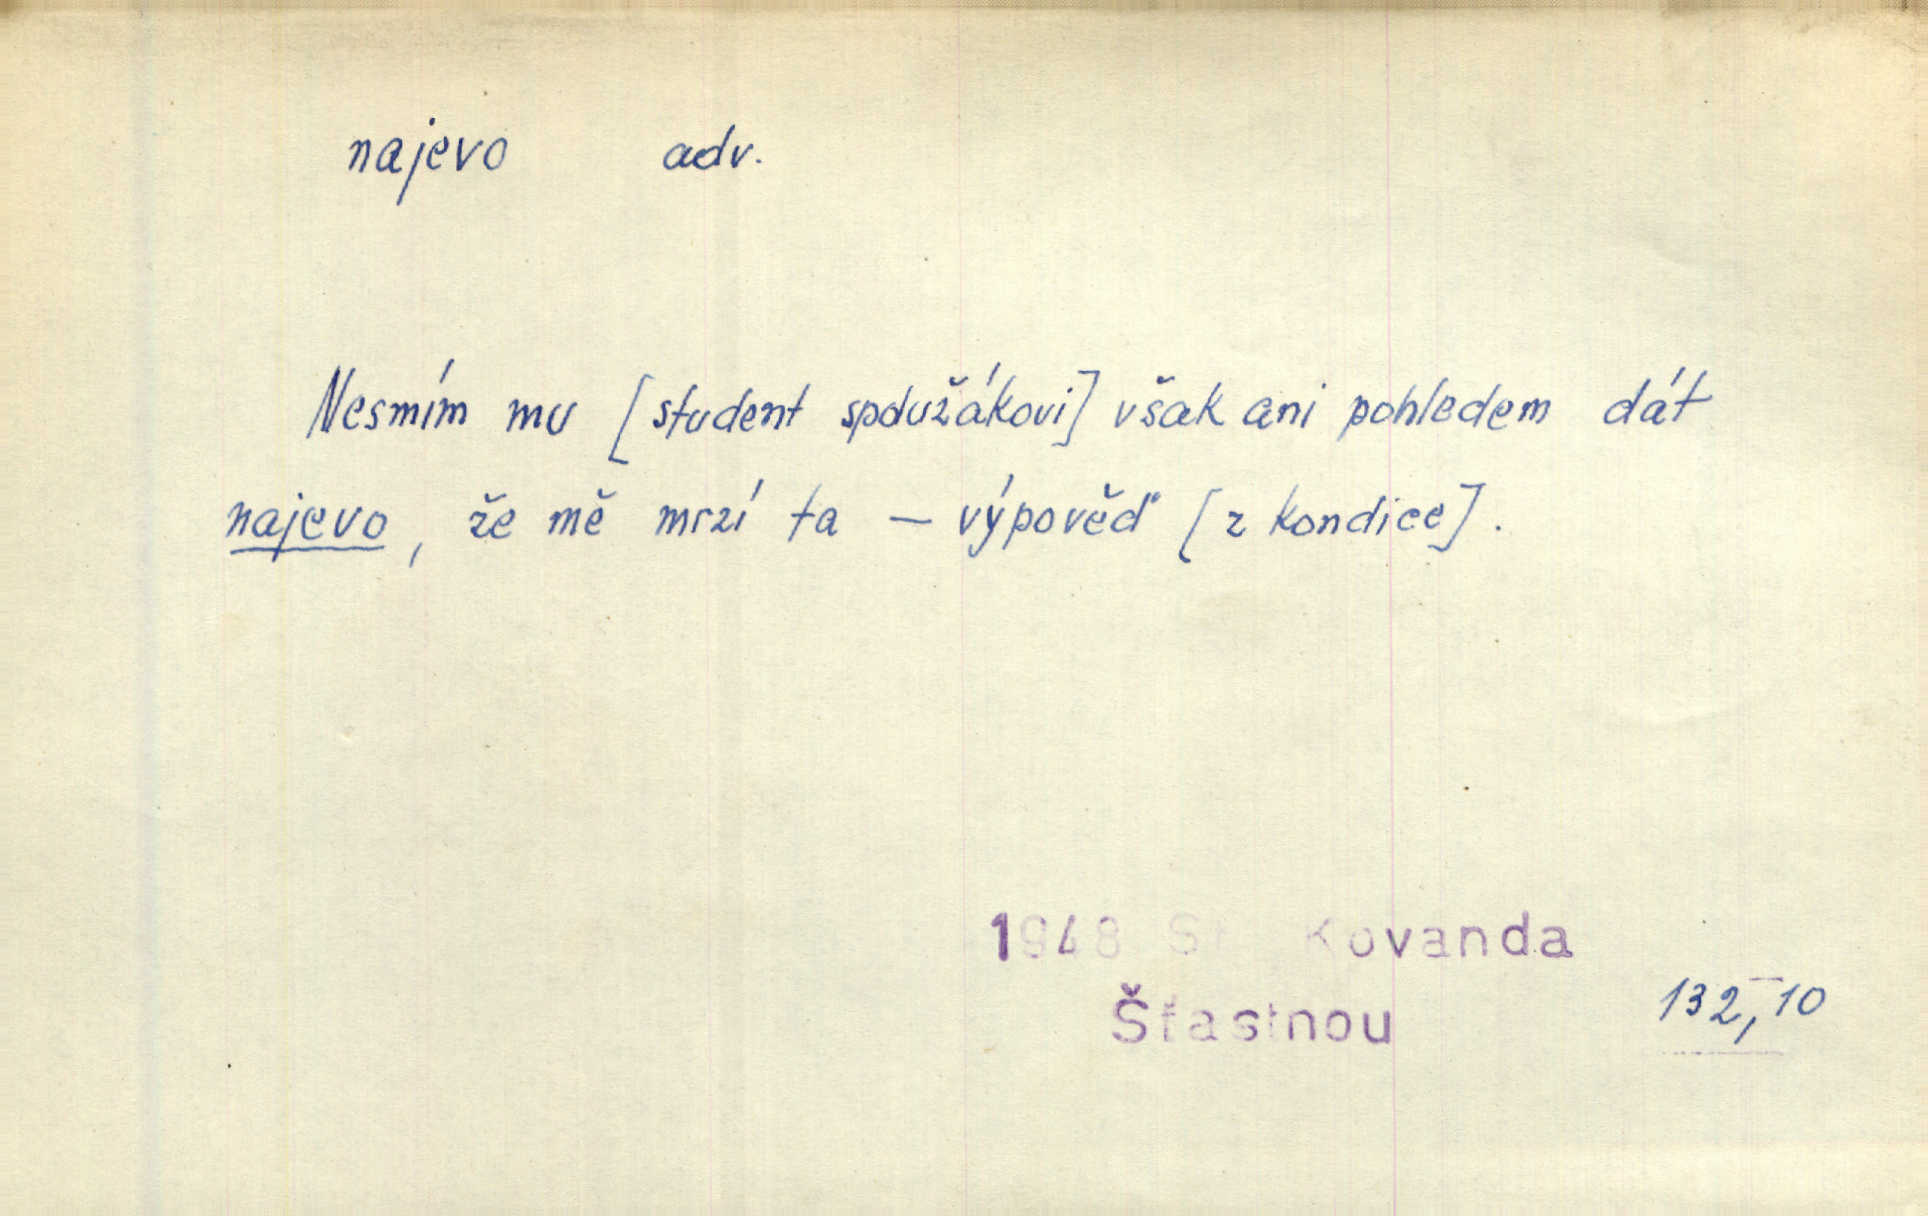 najevo adv.
Nesmím mu [student spdužákovi] však ani pohledem dát
najevo, že mě mrzí ta — výpověď [z kondice].
1948 St. Kovanda
Šťastnou
132,10